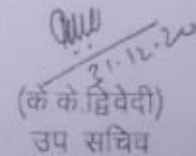 21.12.20
(के के.द्विवेदी)
उप सचिव